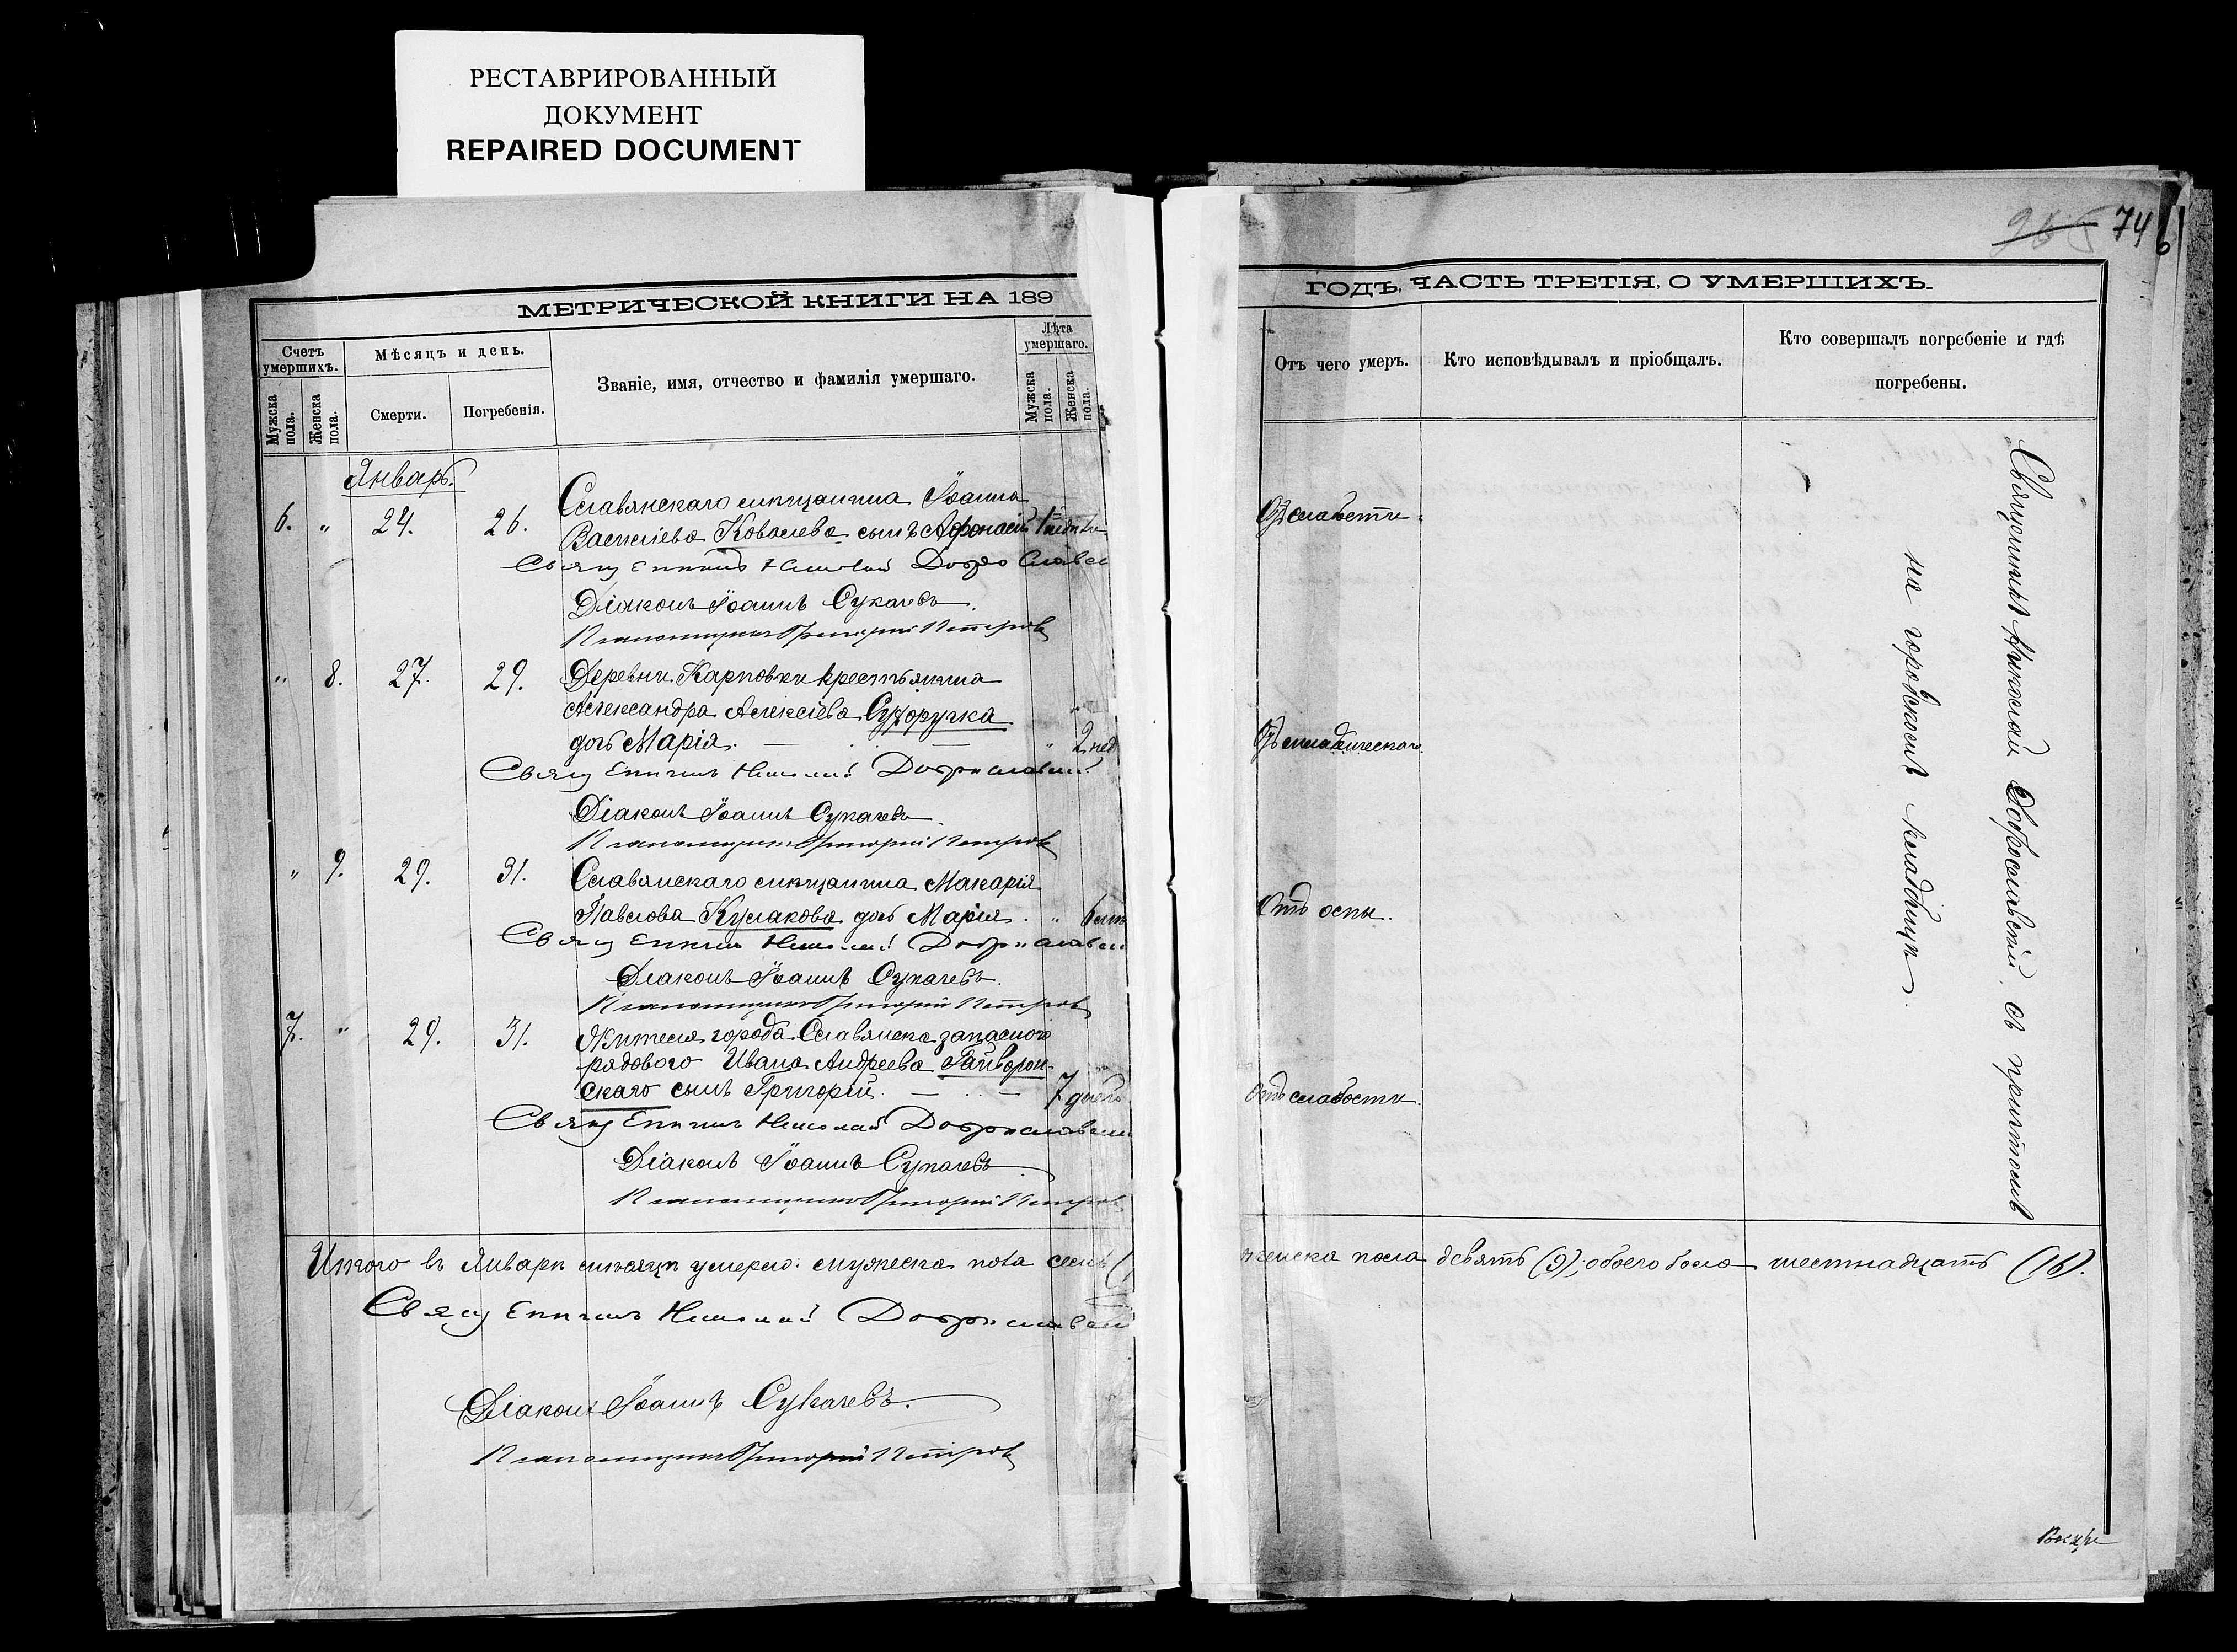 РЕСТАВРИРОВАННЫЙ
ДОКУМЕНТ
REPAIRED DOCUMENT
74
МЕТРИЧЕСКОЙ КНИГИ НА 189
ГОДЪ, ЧАСТЬ ТРЕТІЯ, О УМЕРШИХЪ.
Счетъ умершихъ.
Мужска пола.
Женска пола.
Мѣсяцъ и день.
Смерти.
Погребенія.
Званіе, имя, отчество и фамилія умершаго.
Лѣта умершаго.
Мужска пола.
Женска пола.
Отъ чего умеръ.
Кто исповѣдывалъ и пріобщалъ.
Кто совершалъ погребеніе и гдѣ
погребены.
Январь.
6. " 24. 26. Славянскаго мѣщанина Іоанна
Василіева Ковалева сынъ Афанасій
Отъ слабости.
Священникъ Николай Доброславскі
Діаконъ Іоаннъ Сукачевъ.
Псаломщикъ Григорій Петровъ
" 8. 27. 29. Деревни Карповки крестьянина
Александра Алексѣева Сухоручка
дочь Марія. " 2 нед
Отъ младенческаго.
Священникъ Николай Доброславскі
Діаконъ Іоаннъ Сукачевъ
Псаломщикъ Григорій Петровъ
" 9. 29. 31. Славянскаго мѣщанина Макарія
Павлова Кулакова дочь Марія. "
Отъ оспы.
Священникъ Николай Доброславскі
Діаконъ Іоаннъ Сукачевъ.
Псаломщикъ Григорій Петровъ
7. " 29. 31. Жителя города Славянска запаснаго
рядового Ивана Андреева Гайворон-
скаго сынъ Григорій. 7 дней
Отъ слабости.
Священникъ Николай Доброславскі
Діаконъ Іоаннъ Сукачевъ
Псаломщикъ Григорій Петровъ
Священникъ Николай Доброславскій съ причтомъ
на городскомъ кладбищѣ.
Итого въ Январѣ мѣсяцѣ умерло: мужеска пола семь (
женска пола девять (9); обоего пола шестнадцать (16).
Священникъ Николай Доброславскі
Діаконъ Іоаннъ Сукачевъ.
Псаломщикъ Григорій Петровъ